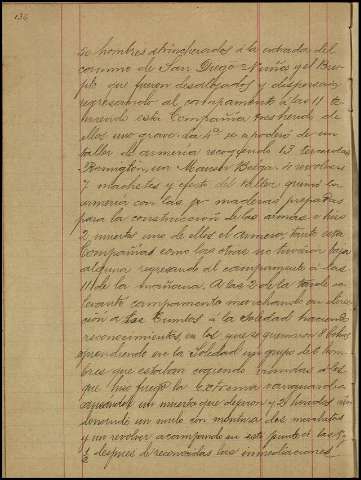 136
50 hombres atrincherados á la entrada del
camino de San Diego Nuñez y el Bru-
jito que fueron desalojados y dispersados
regresando al campamento á las 11 te-
niendo esta Compañia tres heridos de
ellos uno grave. La 4ª se apoderó de un
taller de armeria recogiendo 13 tercerolas
Remington, un Mauser Belga, 4 revolvers
7 machetes y efectos del taller, quemó la
armeria con las maderas preparadas
para la construccion de las armas é hizo
2 muertos uno de ellos el armero, tanto esta
Compañias como las otras no tuvieron baja
alguna regresando al campamento á las
11 de la mañana. A las 2 de la tarde se
levantó campamento marchando en direc-
ción á los á la Soledad haciendo
reconocimientos, en los que se quemaron 8 bohios
sorprendiendo en la Soledad un grupo de hom-
bres que estaban cogiendo viandas á los
que hizo fuego la extrema vanguardia
un muerto que dejaron y 2 heridos aban-
donando un mulo con montura dos machetes
y un revolver acampando en este punto á las 5 y
½ despues de reconocidas las inmediaciones